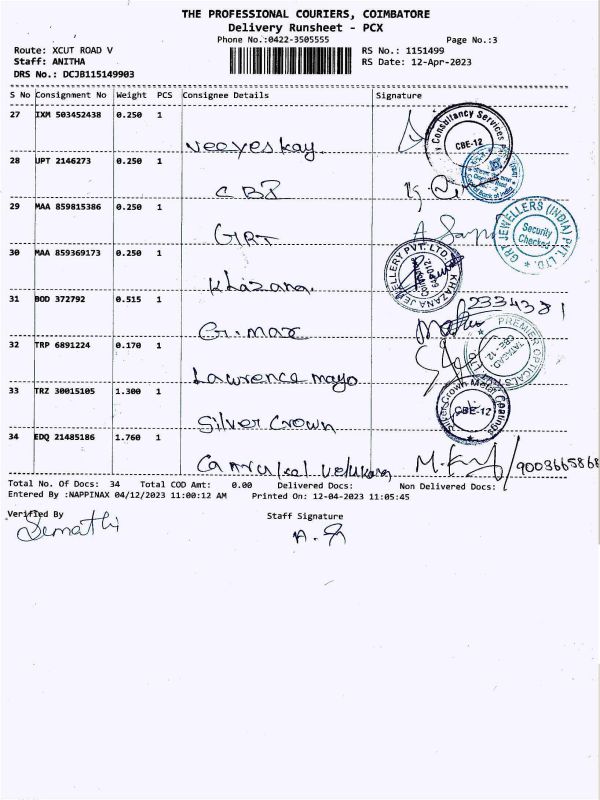 THE PROFESSIONAL COURIERS, COIMBATORE
Delivery Runsheet - PCX
Phone No.:0422-3505555 Page No.:3
Route: XCUT ROAD V RS No.: 1151499
Staff: ANITHA RS Date: 12-Apr-2023
DRS No.: DCJB115149903
S No Consignment No Weight PCS Consignee Details Signature
27 IXM 503452438 0.250 1
Neeyeskay. Consultancy Services CBE-12
28 UPT 2146273 0.250 1
CBI
29 MAA 859815386 0.250 1
GRT GRT JEWELLERS (INDIA) PVT. LTD. Security Checked
30 MAA 859369173 0.250 1
Khazana. KHAZANA JEWELLERY PVT. LTD.
31 BOD 372792 0.515 1 2334381
G.max
32 TRP 6891224 0.170 1
Lawrence mayo PREMIER OPTICALS CBE-12
33 TRZ 30015105 1.300 1
Silver Crown Silver Crown Metal Coatings CBE-12
34 EDQ 21485186 1.760 1
9003665868
Total No. Of Docs: 34 Total COD Amt: 0.00 Delivered Docs: Non Delivered Docs:
Entered By :NAPPINAX 04/12/2023 11:00:12 AM Printed On: 12-04-2023 11:05:45
Verified By Staff Signature